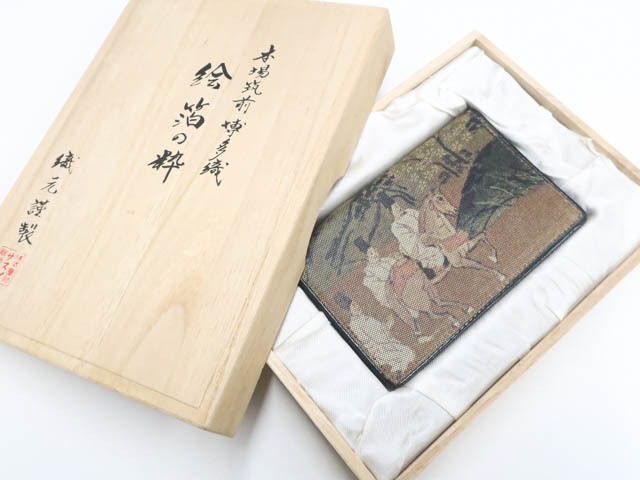 本場筑前博多織
絵箔の粋
織元謹製